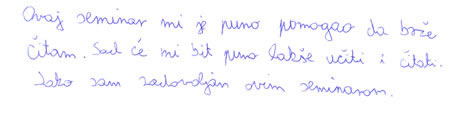 Ovaj seminar mi je puno pomogao da brže
čitam. Sad će mi bit puno lakše učiti i čitati.
Jako sam zadovoljan ovim seminarom.